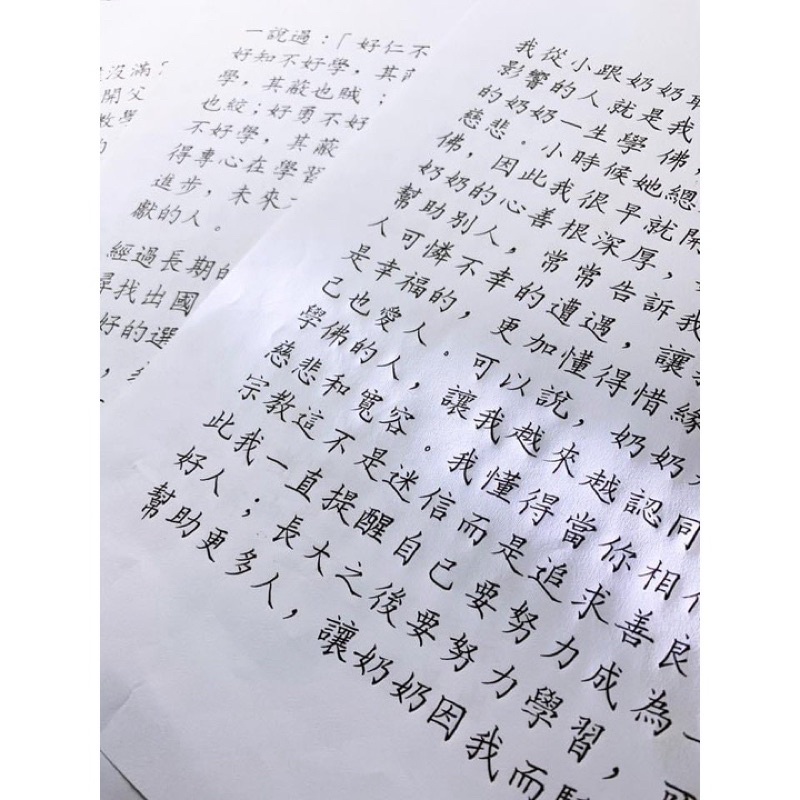 一說過：「好仁不
好知不好學，其
學，其蔽也賊；
也絞；好勇不好
不好學，其蔽
得專心在學習
進步，未來
獻的人。
經過長期的
尋找出國
好的選
沒滿
開父
我從小跟奶奶
影響的人就是我
的奶奶一生學佛，
慈悲。小時候她總
佛，因此我很早就開
奶奶的心善根深厚，
幫助別人，常常告訴我
人可憐不幸的遭遇，讓
是幸福的，更加懂得惜緣
己也愛人。可以說，奶奶
學佛的人，讓我越來越認同
慈悲和寬容。我懂得當你相
宗教這不是迷信而是追求善良
此我一直提醒自己要努力成為一
好人；長大之後要努力學習，可
幫助更多人，讓奶奶因我而